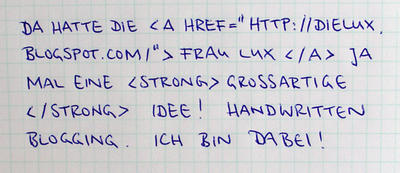 DA HATTE DIE <A HREF="HTTP://DIELUX.
BLOGSPOT.COM/"> FRAU LUX </A> JA
MAL EINE <STRONG> GROSSARTIGE
</STRONG> IDEE! HANDWRITTEN
BLOGGING. ICH BIN DABEI!